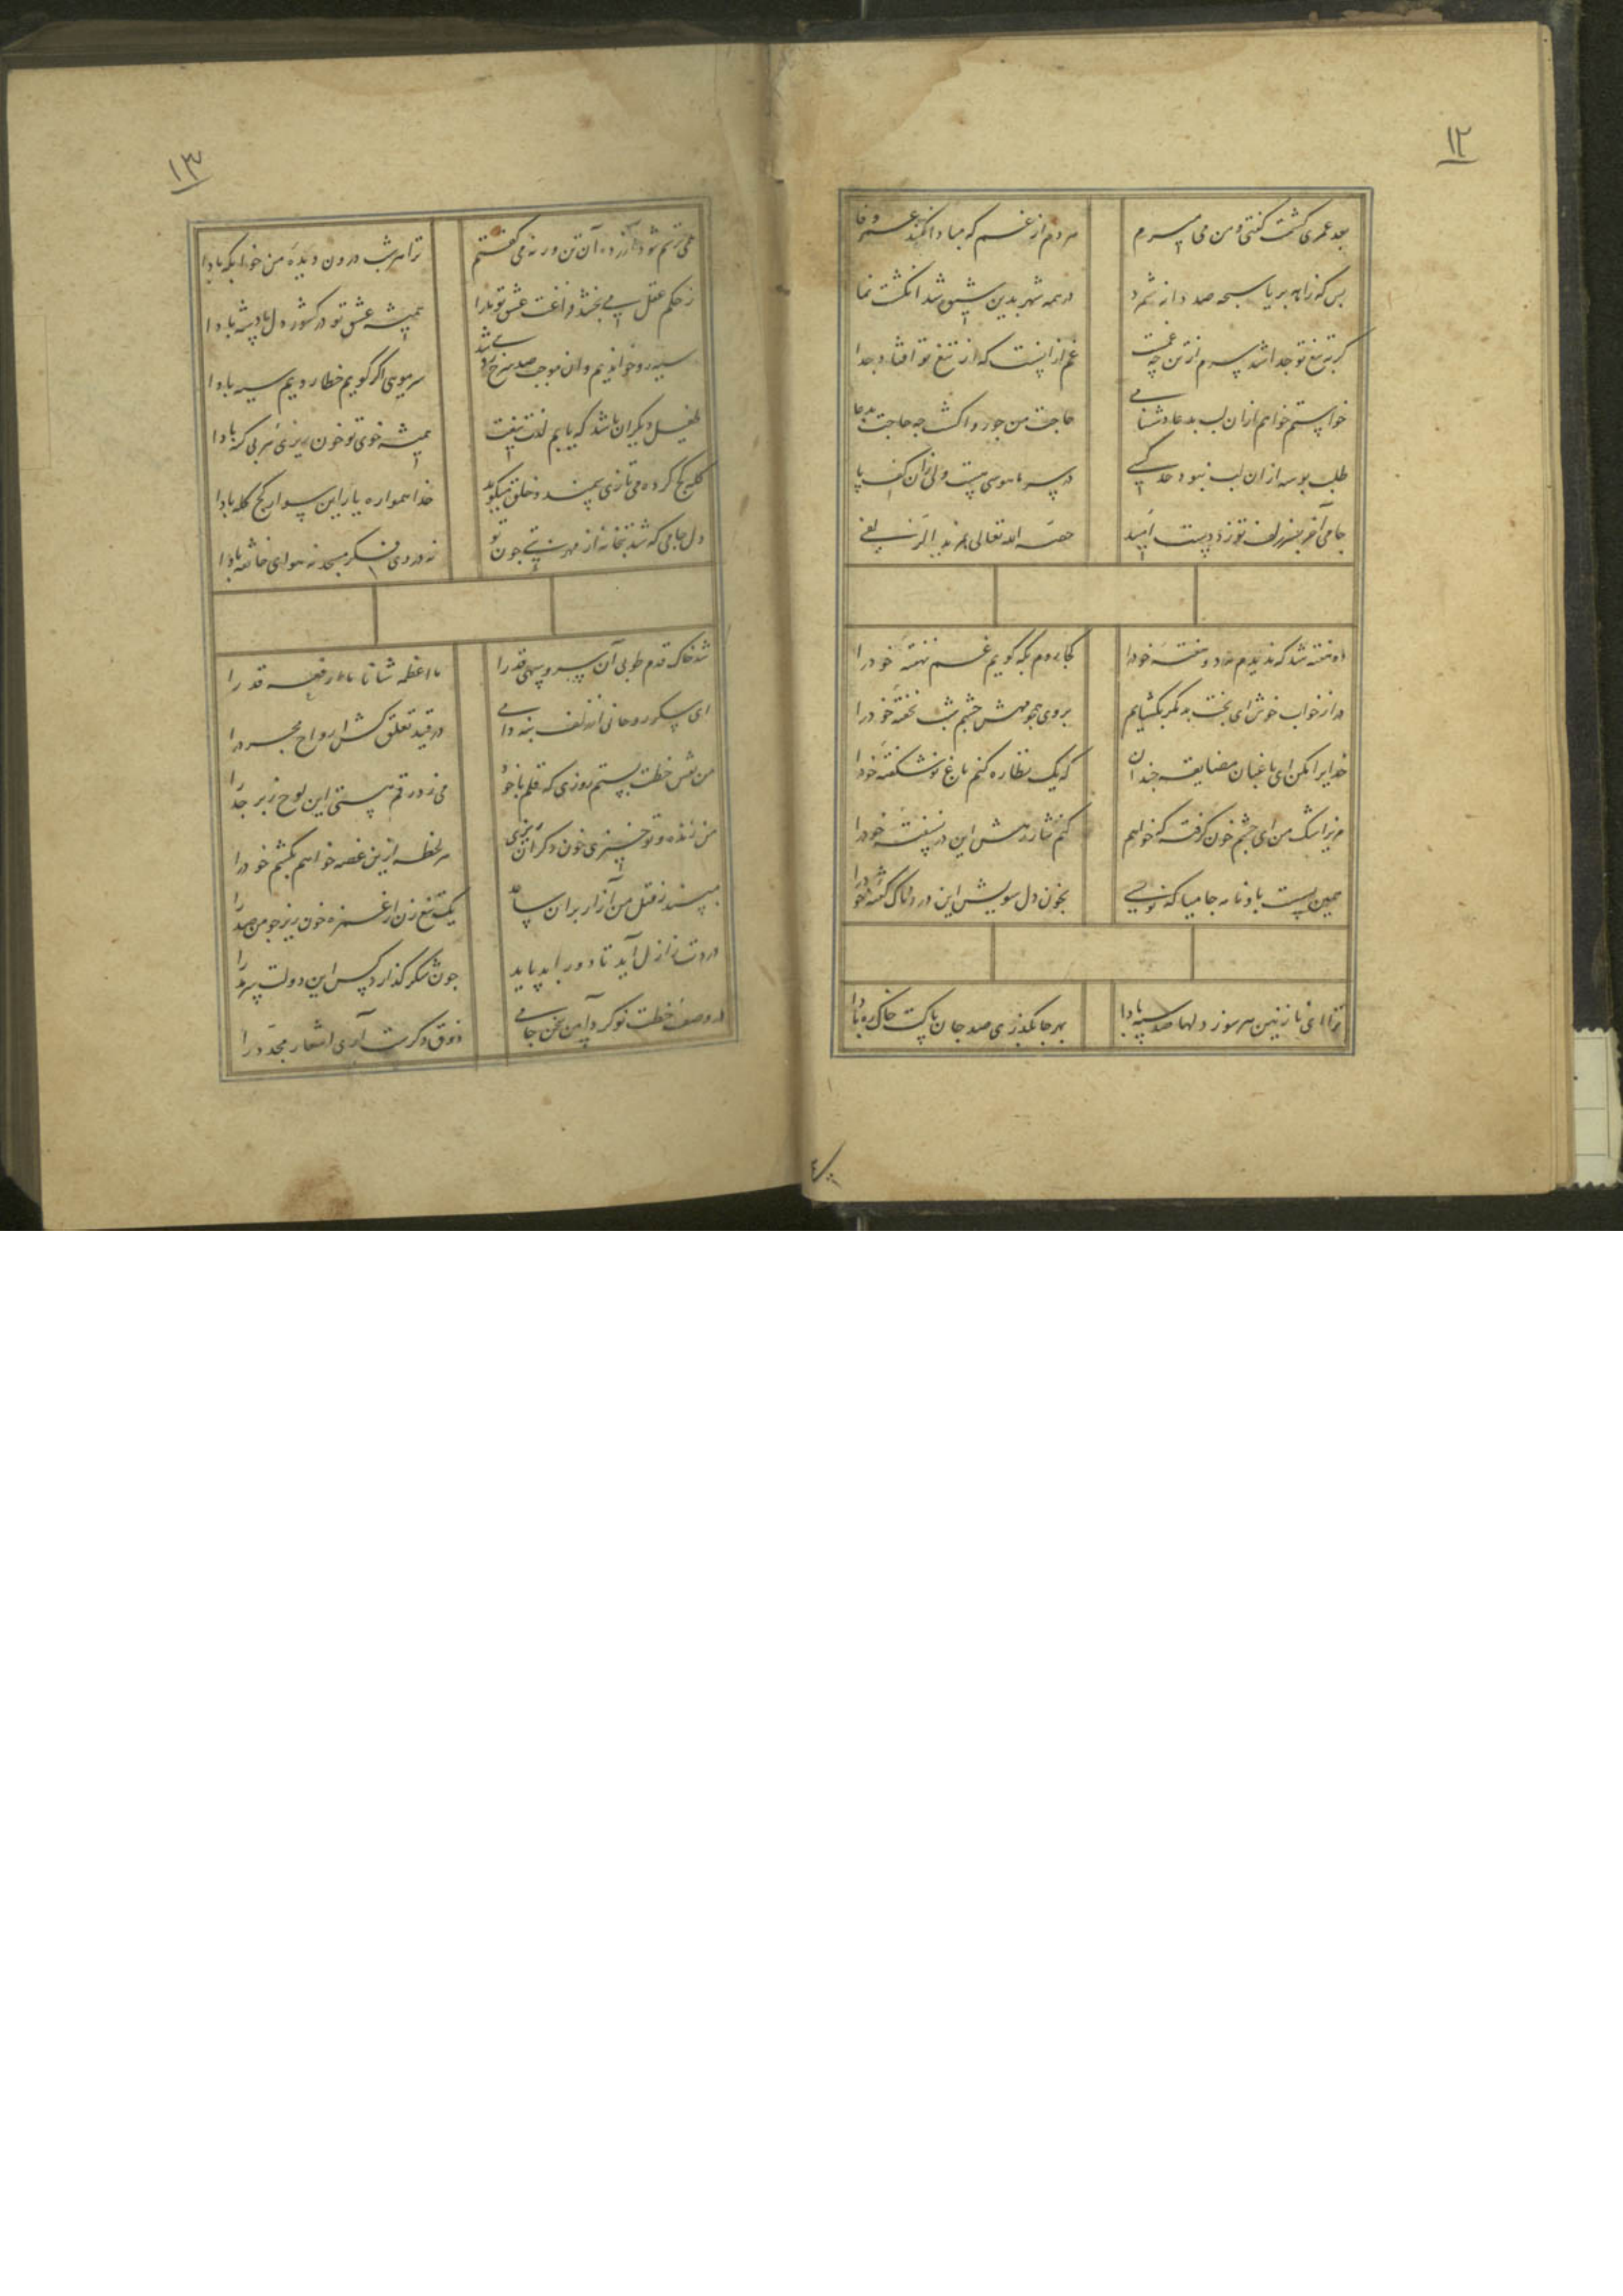 ۱۲
بعد عمری کشمت گفتی و من می میرم
هر دم از غم که مبادا نکند عمر وفا
بس که زاهد بریا سبحه صد دانه شمرد
در همه شهر بدین شیوه شد انگشت نما
گر بتیغ تو جدا شد سرم از تن چه غمت
غم از اینست که از تیغ تو افتاد جدا
خواستم خواهم ازان لب بدعا دشنامی
حاجت من چو روا گشت چه حاجت بدعا
طلب بوسه ازان لب نبود حد کسی
در سر ما هوسی هست ولی زان کف پا
جامی آخر بسر زلف تو زد دست امید
خصه الله تعالی بمزید الزلفی
دو هفته شد که ندیدم مه دو هفته خود را
کجا روم بکه گویم غم نهفته خود را
درا ز خواب خوش ای بخت بد مگر بگشایم
بروی همچو مهش چشم شب نخفته خود را
خدایرا مکن ای باغبان مضایقه چندان
که یک نظاره کنم باغ نوشکفته خود را
مریز اشک من ای چشم خون گرفته که خواهم
کنم نثار رهش این در نسفته خود را
همین بست باو نامه جامیا که نویسی
بخون دل سویش این درد ناک گفته خود را
ترا ای نازنین هر سو ز دلها صد سپه بادا
بهر جا بگذری صد جان پاکت خاک ره بادا
۱۳
همی ترسم شود آزرده آن تن ورنه می گفتم
ترا هر شب درون دیده من خوابگه بادا
ز حکم عقل می بخشد فراغت عشق تو ما را
همیشه عشق تو در کشور دل پادشه بادا
سیه رو خواندیم وان موجب صد سرخ رویی شد
سر مویی اگر گویم خطا رویم سیه بادا
طفیل دیگران باشد که یابم لذت تیغت
همیشه خوی تو خون ریزی هر بی گنه بادا
کله کج کرده می تازی سمند و خلق میگوید
خدا همواره یار این سوار کج کله بادا
دل جامی که شد بتخانه از مهر بتی چون تو
نه در وی فکر مسجد نه هوای خانقه بادا
شد خاک قدم طوبی آن سرو سهی قد را
ما اعظمه شانا ما ارفعه قدرا
ای پیکر روحانی از زلف بنه دامی
در قید تعلق کش ارواح مجرد را
من عشق خطت بستم روزی که قلم با خود
می زد رقم هستی این لوح زبرجد را
من زنده و تو خیزی خون دگران ریزی
هر لحظه ازین غصه خواهم بکشم خود را
مپسند ز قتل من آزار بران ساعد
یک تیغ زن از غمزه خون ریز چو من صد را
دردت ز ازل آید تا دور ابد پاید
چون شکر گذارد کس این دولت سرمد را
در وصف خطت نو کرد آیین سخن جامی
ذوق دگرست آری اشعار مجدد را